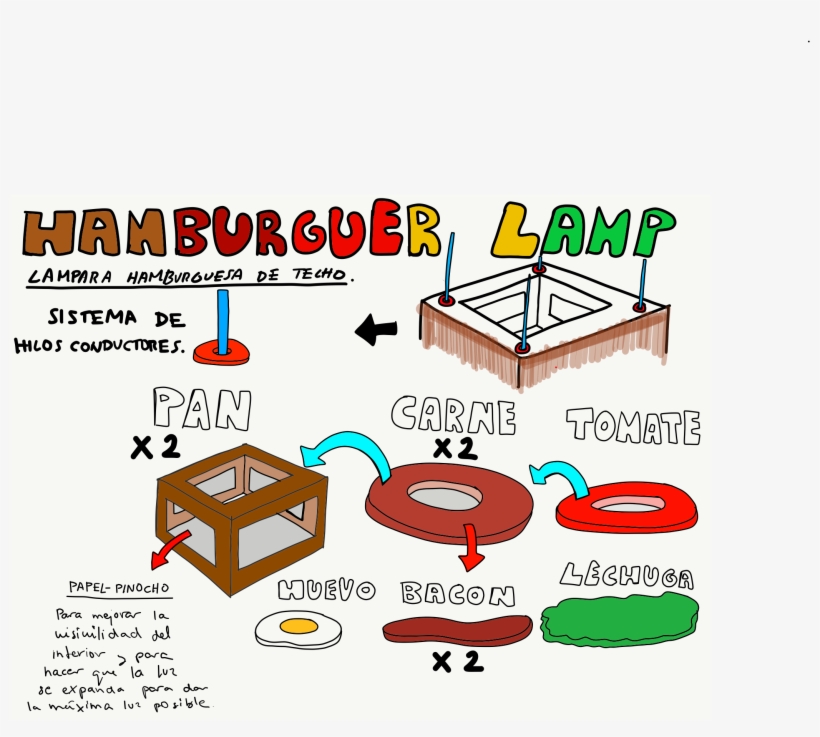 HAMBURGUER LAMP
LAMPARA HAMBURGUESA DE TECHO.
SISTEMA DE
HILOS CONDUCTORES.
PAN
X 2
CARNE
X 2
TOMATE
PAPEL-PINOCHO
Para mejorar la
visivilidad del
interior y para
hacer que la luz
se expanda para dar
la máxima luz posible.
HUEVO
BACON
X 2
LECHUGA